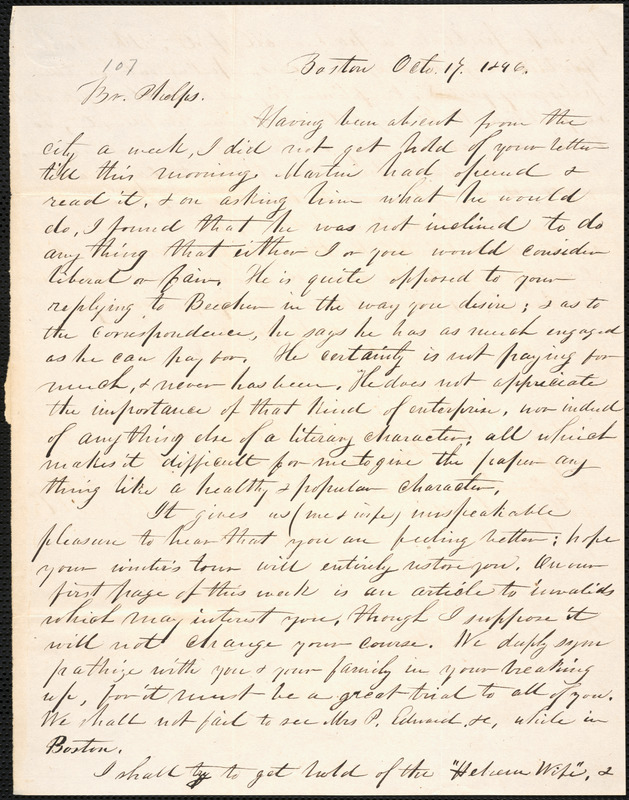 107
Boston Octo. 17. 1846.
Br. Phelps.
Having been absent from the
city a week, I did not get hold of your letter
till this morning. Martin had opened &
read it, & on asking him what he would
do, I found that he was not inclined to do
any thing that either I or you would consider
liberal or fair. He is quite opposed to your
replying to Beecher in the way you desire; & as to
the correspondence, he says he has as much engaged
as he can pay for. He certainly is not paying for
much, & never has been. He does not appreciate
the importance of that kind of enterprise, nor indeed
of any thing else of a literary character; all which
makes it difficult for me to give the paper any
thing like a healthy & popular character.
It gives us (me & wife) unspeakable
pleasure to hear that you are feeling better; hope
your winter's tour will entirely restore you. On our
first page of this week is an article to invalids
which may interest you, though I suppose it
will not change your course. We deeply sym
pathize with you & your family in your breaking
up, for it must be a great trial to all of you.
We shall not fail to see Mrs P. Edward &c, while in
Boston.
I shall try to get hold of the "Hebrew Wife", &